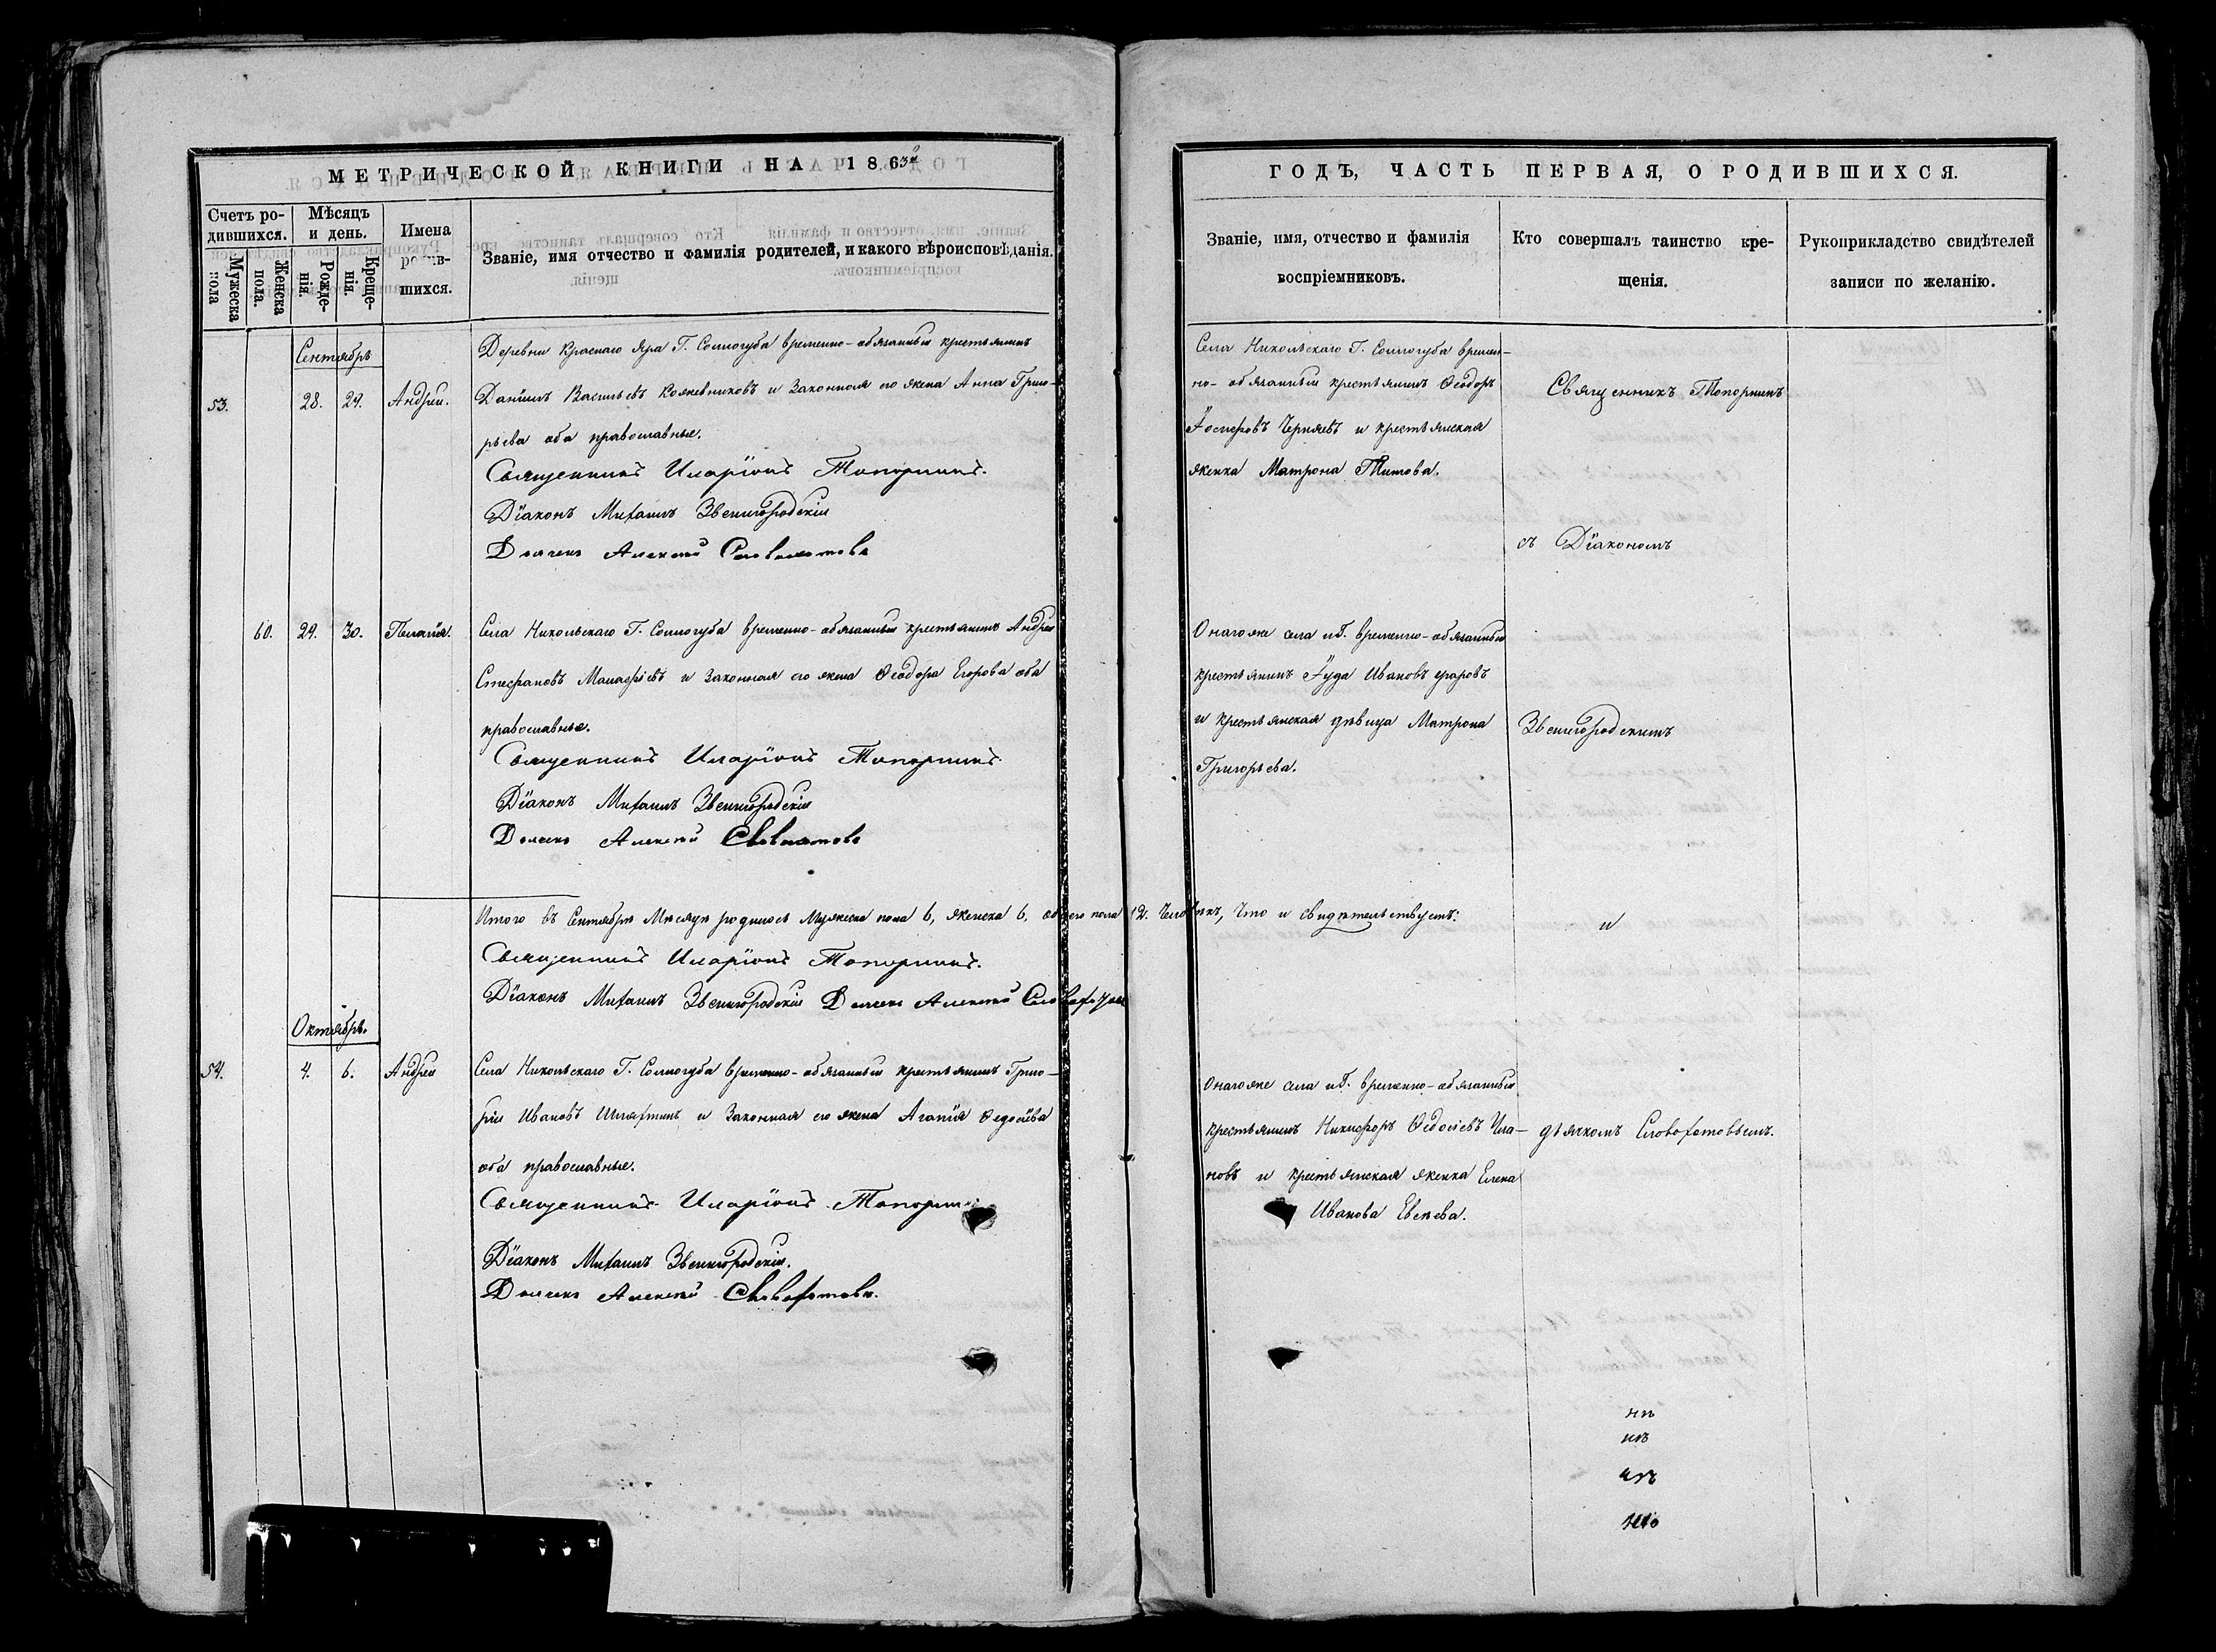 МЕТРИЧЕСКОЙ КНИГИ НА 1863й
Счетъ ро-
дившихся.
Мужеска
пола
Женска
пола.
Мѣсяцъ
и день.
Рожде-
нія.
Креще-
нія.
Имена
родив-
шихся.
Званіе, имя отчество и фамилія родителей, и какого вѣроисповѣданія.
Сентябрь
53. 28. 29. Андрей.
Деревни Краснаго Яра Г. Соллогуба временно-обязанный крестьянинъ
Даніилъ Васильевъ Кожевниковъ и законная его жена Анна Григо-
рьева оба православные.
Священникъ Иларіонъ Топорнинъ.
Діаконъ Михаилъ Звенигородскій
Дьячекъ Алексей
60. 29. 30. Пелагія.
Села Никольскаго Г. Соллогуба временно-обязанный крестьянинъ Андрей
Стефановъ Малафѣевъ и законная его жена Ѳеодора Егорова оба
православные.
Священникъ Иларіонъ Топорнинъ.
Діаконъ Михаилъ Звенигородскій
Дьячекъ Алексей
Итого въ Сентябрѣ Мѣсяцѣ родилось Мужеска пола 6, женска 6, обоего пола 12. Человѣкъ, Что и свидѣтельствуемъ:
Священникъ Иларіонъ Топорнинъ.
Діаконъ Михаилъ Звенигородскій Дьячекъ Алексей Словохотовъ
Октябрь.
54. 4. 6. Андрей
Села Никольскаго Г. Соллогуба временно-обязанный крестьянинъ Григо-
рій Ивановъ Шляхтинъ и законная его жена Агапія Ѳедосѣева
оба православные.
Священникъ Иларіонъ Топорнинъ
Діаконъ Михаилъ Звенигородскій.
Дьячекъ Алексей Словохотовъ.
ГОДЪ, ЧАСТЬ ПЕРВАЯ, О РОДИВШИХСЯ.
Званіе, имя, отчество и фамилія
воспріемниковъ.
Кто совершалъ таинство кре-
щенія.
Рукоприкладство свидѣтелей
записи по желанію.
Села Никольскаго Г. Соллогуба времен-
но-обязанный крестьянинъ Ѳеодоръ
Іосифовъ Черняевъ и крестьянская
женка Матрона Титова.
Священникъ Топорнинъ
съ Діакономъ
Онагоже села и Г. временно-обязанный
крестьянинъ Іуда Ивановъ
и крестьянская дѣвица Матрона
Григорьева.
Звенигородскимъ
и
Онагоже села и Г. временно-обязанный
крестьянинъ Никифоръ Ѳедосѣевъ Ула-
новъ и крестьянская женка Елена
Иванова
дьячкомъ Словохотовымъ.